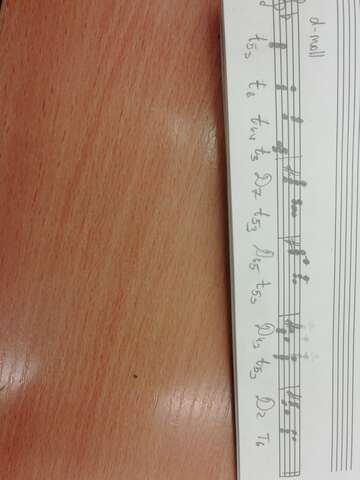 d-moll
t53 t6 t64 t53 D7 t53 D65 t53 D43 t53 D2 T6